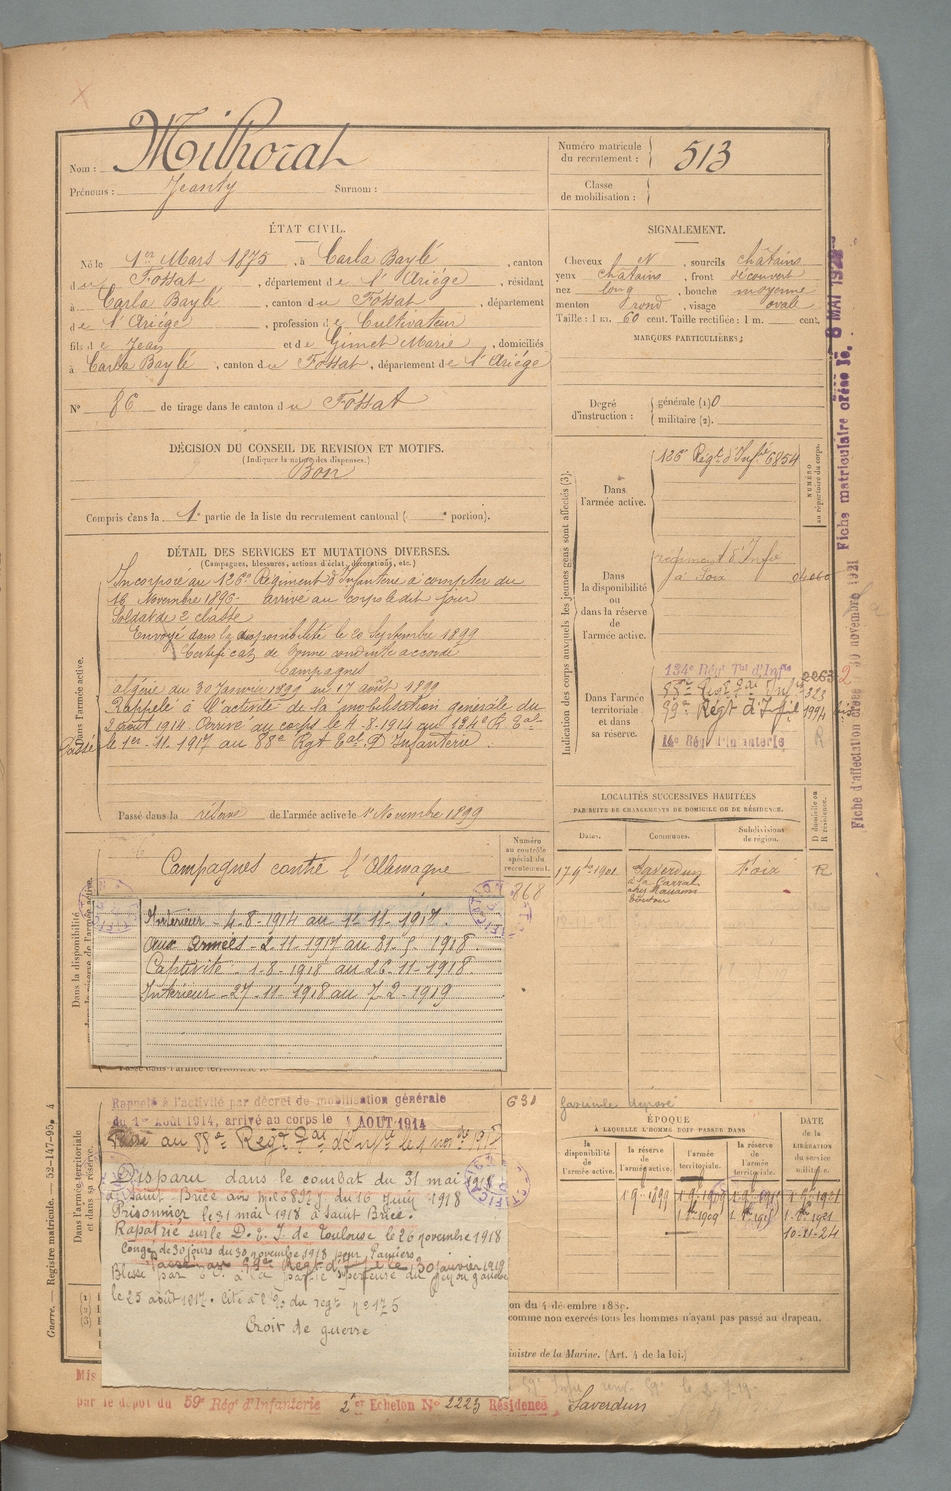 Nom : Milhorat
Prénoms : Jeanty Surnom :
Numéro matricule du recrutement : 513
Classe de mobilisation :
ÉTAT CIVIL.
Né le 1er Mars 1875, à Carla Baylé, canton
du Fossat, département de l'Ariége, résidant
à Carla Baylé, canton du Fossat, département
de l'Ariége, profession de Cultivateur
fils de Jean et de Gimet Marie, domiciliés
à Carla Baylé, canton du Fossat, département de l'Ariége
N° 86 de tirage dans le canton du Fossat
SIGNALEMENT.
Cheveux N, sourcils châtains
yeux châtains, front découvert
nez long, bouche moyenne
menton rond, visage ovale
Taille : 1 m. 60 cent. Taille rectifiée : 1 m. cent.
MARQUES PARTICULIÈRES :
Degré d'instruction : générale (1) 0
militaire (2).
DÉCISION DU CONSEIL DE REVISION ET MOTIFS.
(Indiquer la nature des dispenses.)
Bon
Compris dans la 1e partie de la liste du recrutement cantonal ( portion).
DÉTAIL DES SERVICES ET MUTATIONS DIVERSES.
(Campagnes, blessures, actions d'éclat, décorations, etc.)
Dans l'armée active.
Incorporé au 126e Régiment d'Infanterie à compter du
16 Novembre 1896 arrivé au corps le dit jour
Soldat de 2 classe
Envoyé dans la disponibilité le 20 Septembre 1899
Certificat de bonne conduite accordé
Campagnes
Algérie du 30 Janvier 1899 au 17 août 1899
Rappelé à l'activité de la mobilisation générale du
2 août 1914. Arrivé au corps le 4-8-1914 au 134e R Tal
Passé le 1er-11-1917 au 88e Rgt Tal d'Infanterie.
Passé dans la réserve de l'armée active le 1r Novembre 1899
Indication des corps auxquels les jeunes gens sont affectés (3).
NUMÉRO au répertoire du corps.
Dans l'armée active.
126e Régt d'Infie 6854
Dans la disponibilité ou dans la réserve de l'armée active.
régiment d'Infie
à Foix
Dans l'armée territoriale et dans sa réserve.
134e Régt Tal d'Infie
99e Régt d'Infie 1994
14e Rég d'Infanterie
Fiche d'affectation créée 30 novembre 1921
Fiche matriculaire créée le 8 MAI
Dans la disponibilité
Numéro au contrôle spécial du recrutement.
868
Campagnes contre l'Allemagne
Intérieur - 4-8-1914 au 1-11-1917.
aux Armées - 2-11-1917 au 31-5-1918.
Captivité - 1-8-1918 au 26-11-1918.
Intérieur - 27-11-1918 au 7-2-1919
Passé dans l'armée territoriale le
LOCALITÉS SUCCESSIVES HABITÉES
PAR SUITE DE CHANGEMENTS DE DOMICILE OU DE RÉSIDENCE.
Dates. Communes. Subdivisions de région. D domicile ou R résidence.
17 9bre 1901 Saverdun Foix R
Dans l'armée territoriale et dans sa réserve.
Rappelé à l'activité par décret de mobilisation générale
du 1er Août 1914, arrivé au corps le 4 AOUT 1914
Passé au 88e Régt Tal d'Infie le 1 nov 1917
Disparu dans le combat du 31 mai 1918
à Saint Brice avis du 16 Juin 1918
Prisonnier le 31 mai 1918 à Saint Brice.
Rapatrié sur le D. I. de Toulouse le 26 novembre 1918
Congé de 30 jours du 30 novembre 1918 pour Pamiers
Passé au 99e Régt d'I le 30 janvier 1919
Blessé
le 25 août 1917. Cité à l'O/ du regt n° 175
Croix de guerre
ÉPOQUE
À LAQUELLE L'HOMME DOIT PASSER DANS
la disponibilité de l'armée active.
la réserve de l'armée active.
l'armée territoriale.
la réserve de l'armée territoriale.
DATE de la LIBÉRATION du service militaire.
1 9bre 1899
10-11-24
on du 4 décembre 1889.
comme non exercés tous les hommes n'ayant pas passé au drapeau.
ministre de la Marine. (Art. 4 de la loi.)
Guerre. — Registre matricule. — 52-147-95. 4
Mis
par le dépôt du 59e Rég d'Infanterie 2e Echelon N° 2223 Résidence Saverdun